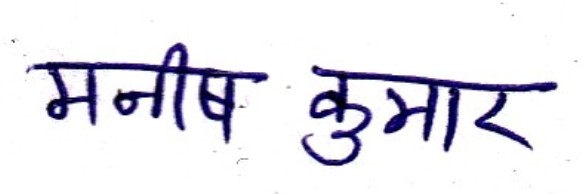 मनीष कुमार